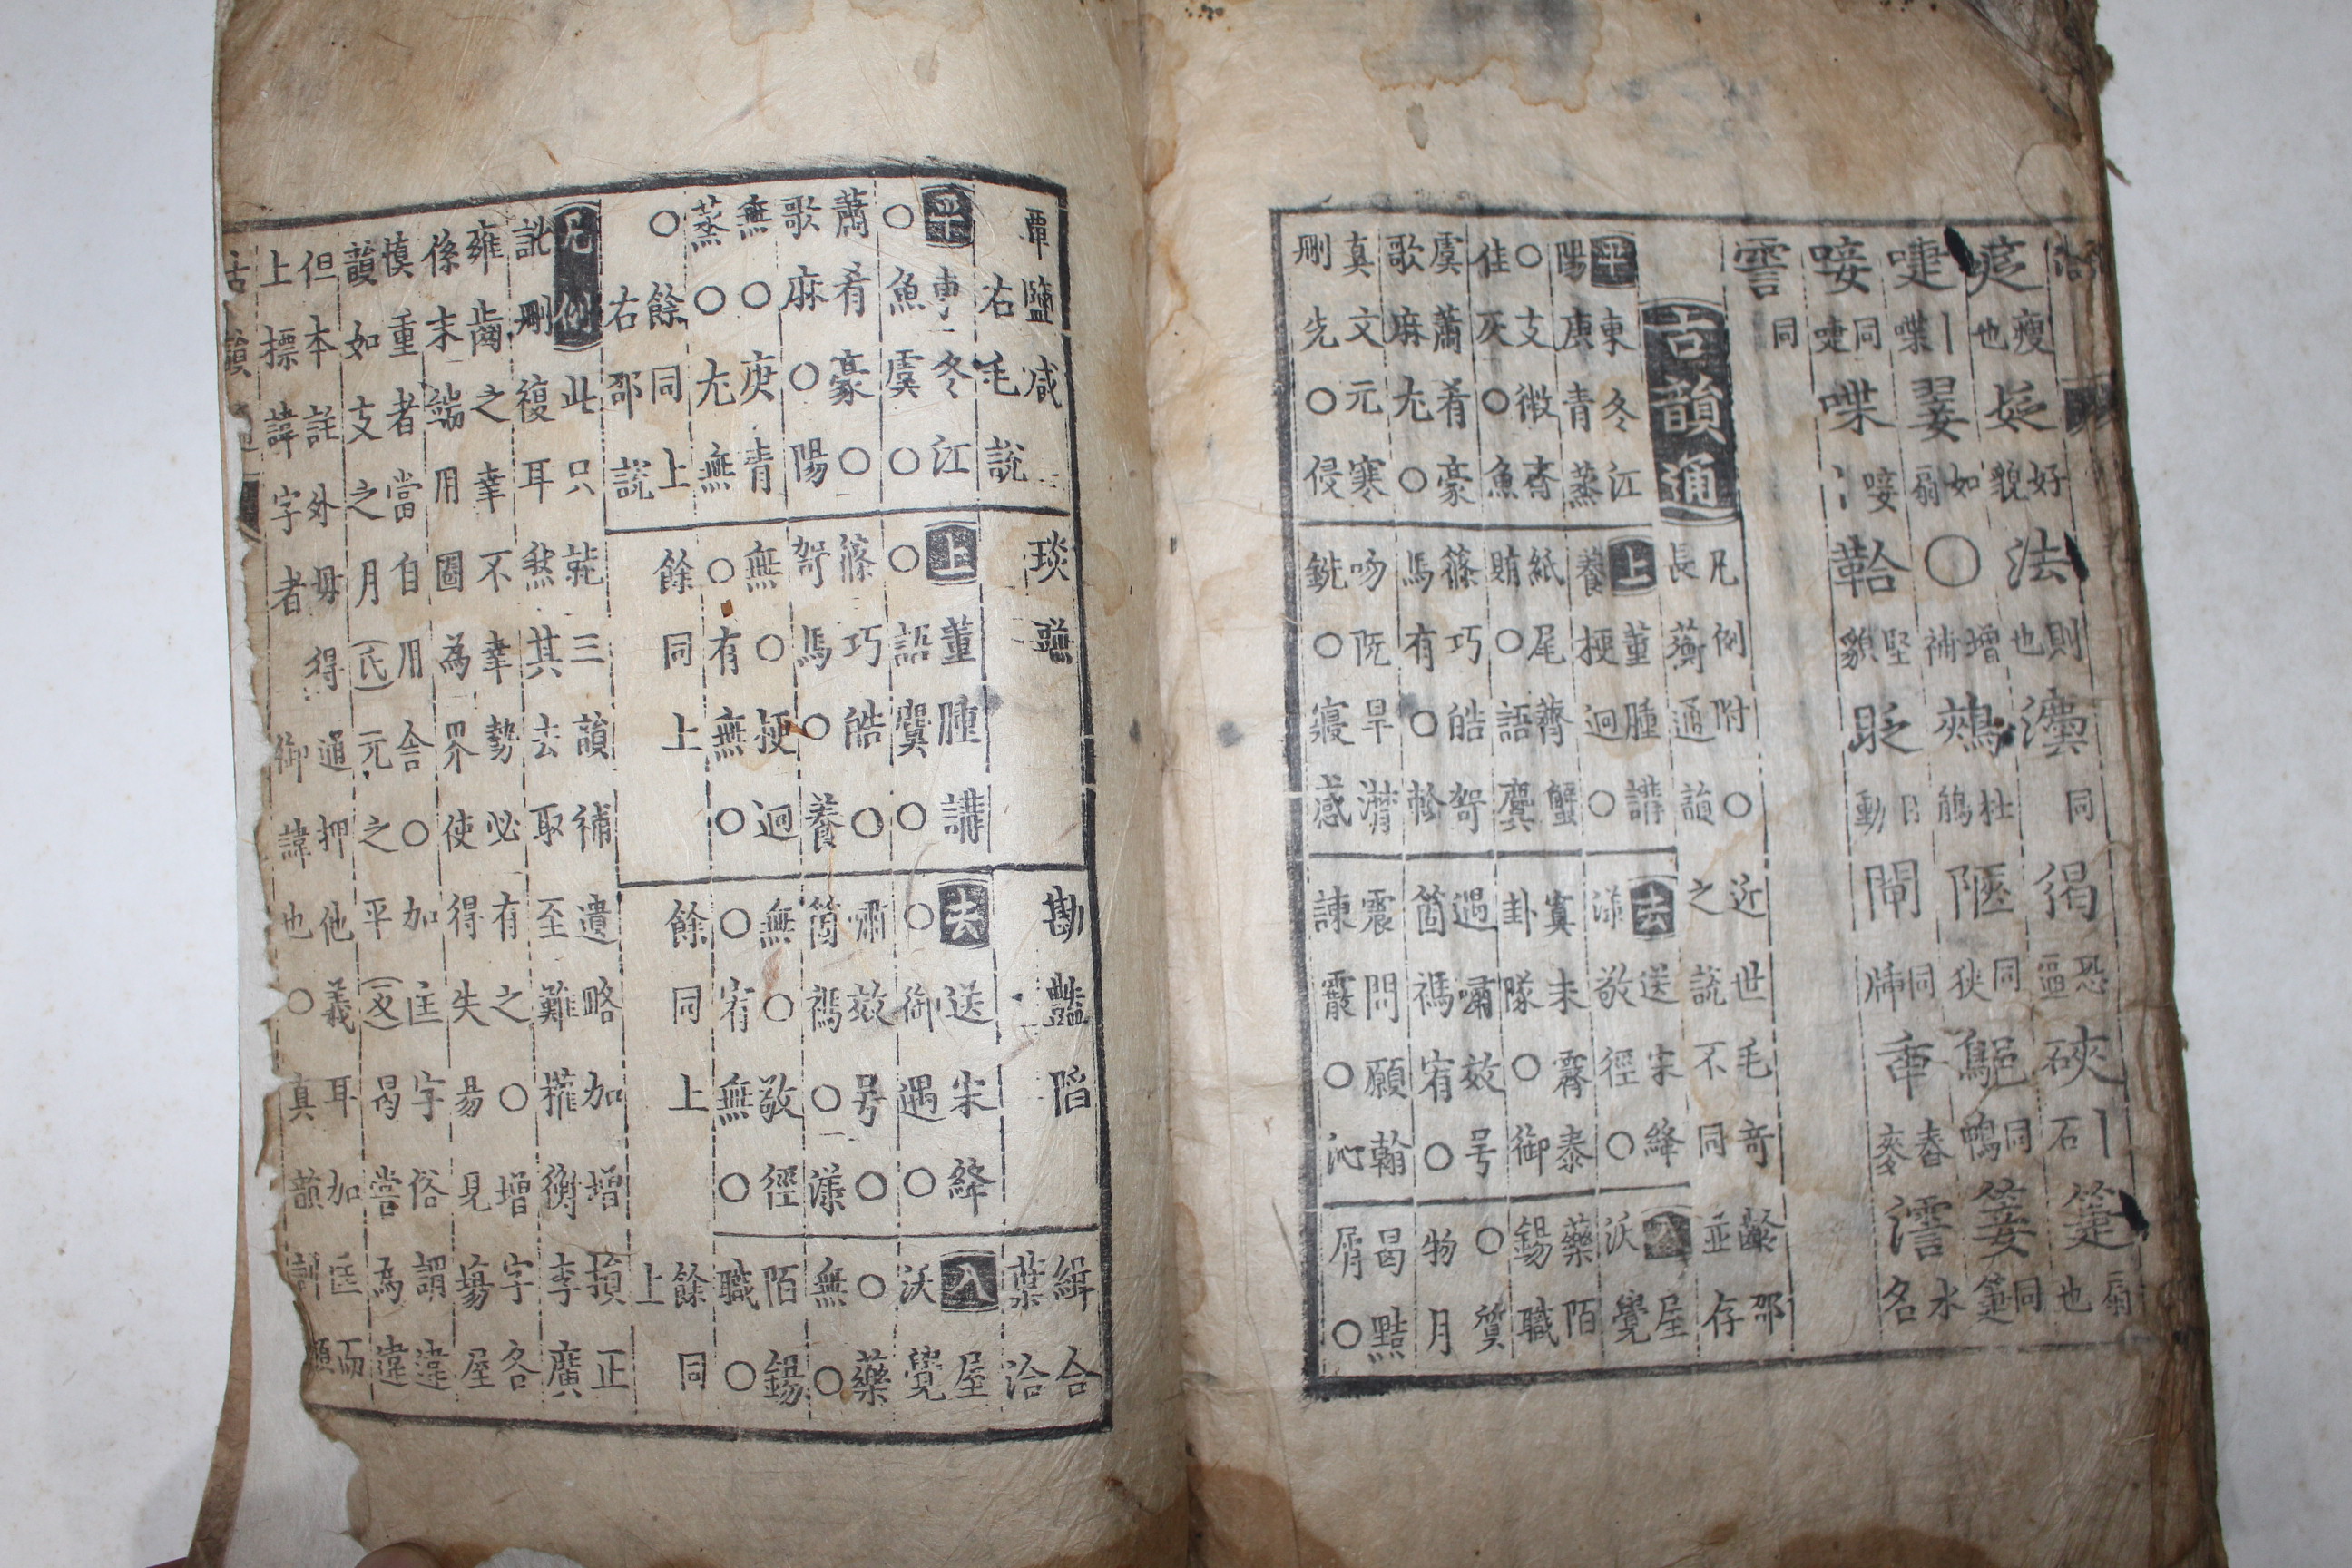 疌瘦也㛍好貌法則也灋同猲恐逼硤丨石箑扇也
啑丨喋翣如扇○增補 杜鵑陿同狹 同 萐同箑
唼同啑喋唼丨鞈堅貌眨目動閘同牐臿舂麥 水名
霅同
古韻通 凡例附○近世毛奇齡邵
長蘅通韻之說不同並存
平 東冬江 上 董腫講 去 送宋絳 入 屋
陽庚青蒸 養梗迥○ 漾敬徑○ 沃覺
○支微齊 紙尾薺蟹 寘未霽泰 藥陌
佳灰○魚 賄○語麌 卦隊○御 錫職
虞蕭肴豪 篠巧皓哿 遇嘯效号 ○質
歌麻尤○ 馬有○軫 箇禡宥○ 物月
真文元寒 吻阮旱潸 震問願翰 曷黠
刪先○侵 銑○寢感 諫霰○沁 屑○
覃鹽咸 琰豏 勘豔陷 緝合
右毛說 葉洽
平 東冬江 上 董腫講 去 送宋絳 入 屋
○魚虞○ ○語麌○ ○御遇○ 沃覺
蕭肴豪○ 篠巧皓○ 嘯效号○ ○藥
歌麻○陽 哿馬○養 箇禡○漾 無○
無○庚青 無○梗迥 無○敬徑 陌錫
蒸○尤無 ○有無○ ○宥無○ 職○
餘同上 餘同上 餘同上 餘同
○右邵說 上
凡例 此只就三韻補遺略加增損正
訛刪複耳然其去取至難權衡李廣
雍齒之幸不幸勢必有之○增字各
係末端用圈為界使得失易見場屋
慎重者當自用舍○加匡字俗謂違
韻如支之月(氏)元之平(反)曷嘗為違
但本註外毋得通押他義耳加匡而
上標諱字者御諱也○真韻訓
古韻通